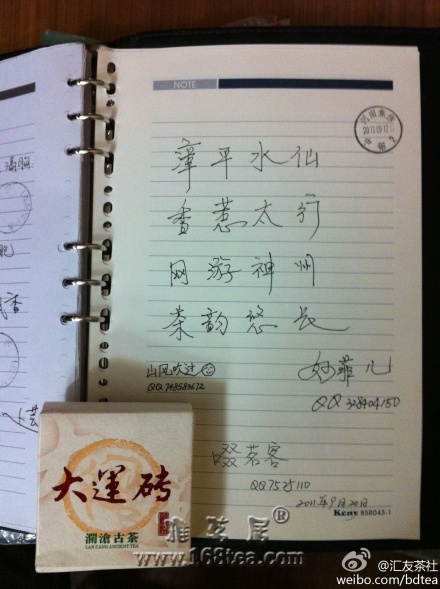 NOTE
2011.09.12
章平水仙
香惹太行
网游神州
茶韵悠长
山风吹过
QQ748583672
妙菲儿
QQ328404150
啜茗客
QQ7525110
2011年9月20日
Keny 858043-1
大運磚
瀾滄古茶
LAN CANG ANCIENT TEA
雅茗居®
www.168tea.com
@汇友茶社
weibo.com/bdtea